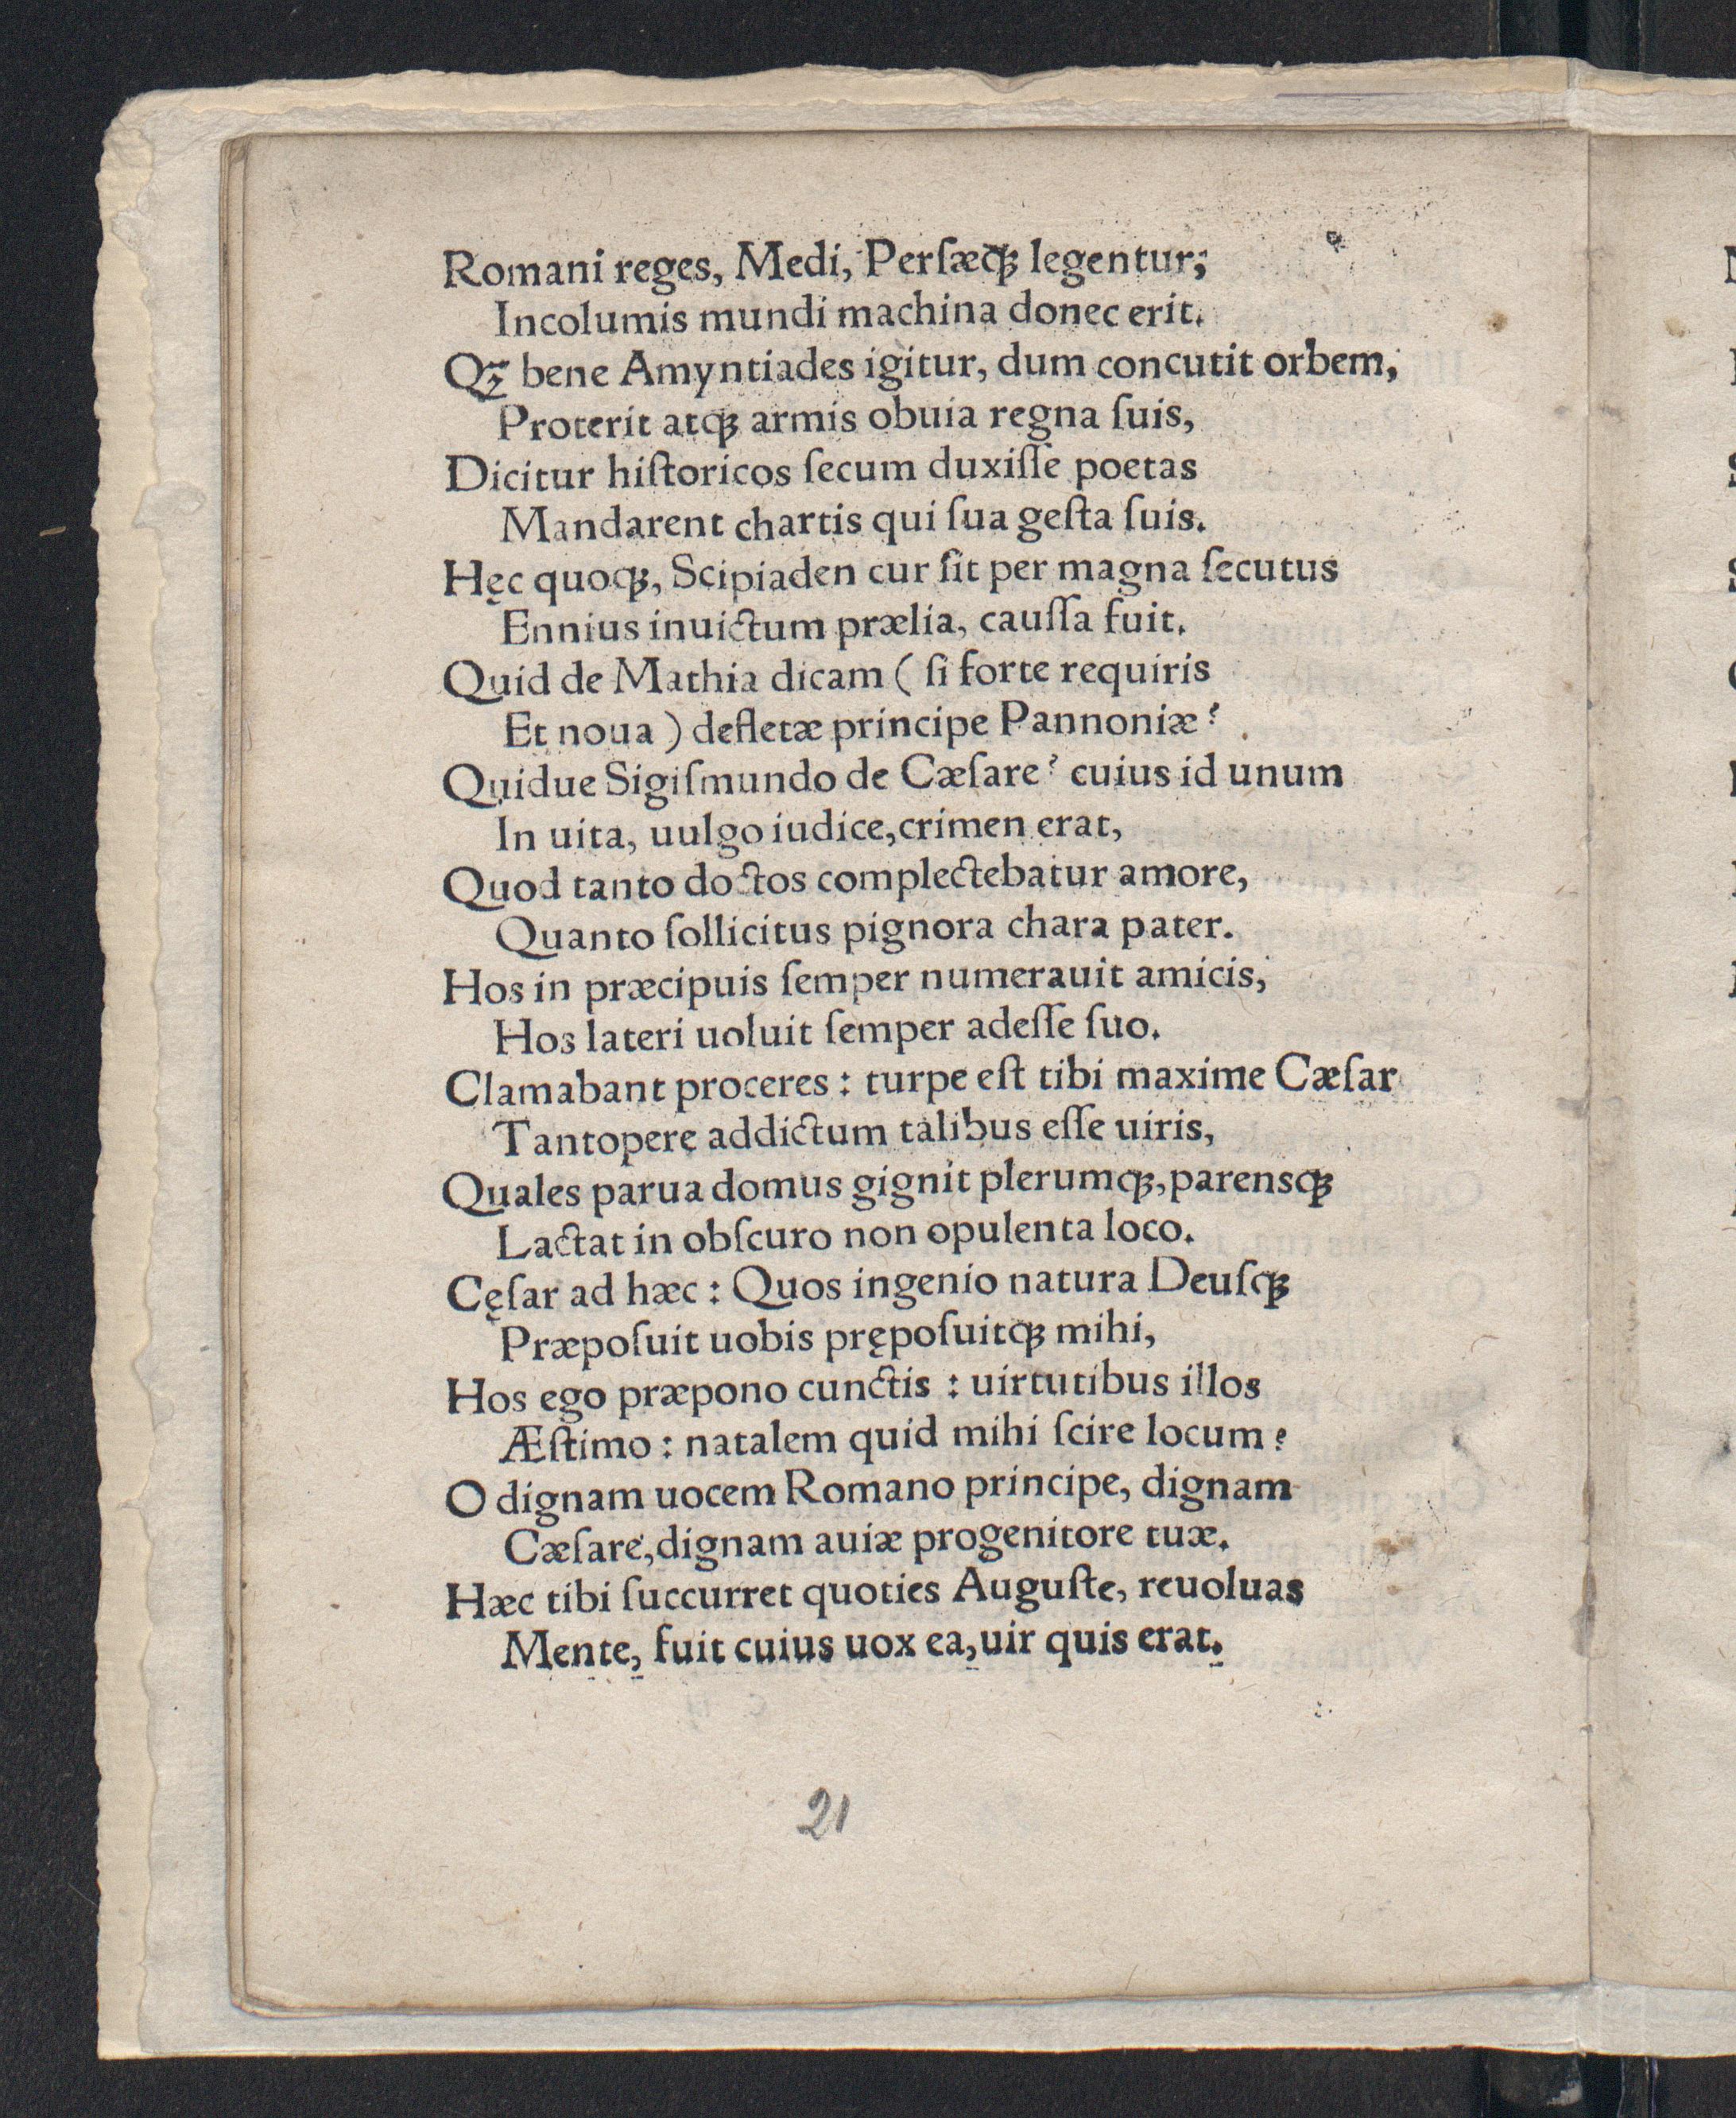 Romani reges, Medi, Perſæqꝫ legentur;
Incolumis mundi machina donec erit.
Qꝫ̃ bene Amyntiades igitur, dum concutit orbem,
Proterit atqꝫ armis obuia regna ſuis,
Dicitur hiſtoricos ſecum duxiſſe poetas
Mandarent chartis qui ſua geſta ſuis.
Hęc quoqꝫ, Scipiaden cur ſit per magna ſecutus
Ennius inuictum prælia, cauſſa fuit.
Quid de Mathia dicam ( ſi forte requiris
Et noua ) defletæ principe Pannoniæ?
Quidue Sigiſmundo de Cæſare? cuius id unum
In uita, uulgo iudice,crimen erat,
Quod tanto doctos complectebatur amore,
Quanto ſollicitus pignora chara pater.
Hos in præcipuis ſemper numerauit amicis,
Hos lateri uoluit ſemper adeſſe ſuo.
Clamabant proceres : turpe eſt tibi maxime Cæſar
Tantopere addictum talibus eſſe uiris,
Quales parua domus gignit plerumqꝫ,parensqꝫ
Lactat in obſcuro non opulenta loco.
Cęſar ad hæc : Quos ingenio natura Deuſqꝫ
Præpoſuit uobis prępoſuitqꝫ mihi,
Hos ego præpono cunctis : uirtutibus illos
Æſtimo : natalem quid mihi ſcire locum?
O dignam uocem Romano principe, dignam
Cæſare,dignam auiæ progenitore tuæ.
Hæc tibi ſuccurret quoties Auguſte, reuoluas
Mente, fuit cuius uox ea,uir quis erat.
21